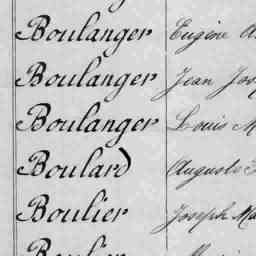 Boulanger Eugène
Boulanger Jean
Boulanger Louis
Boulard Auguste
Boulier Joseph